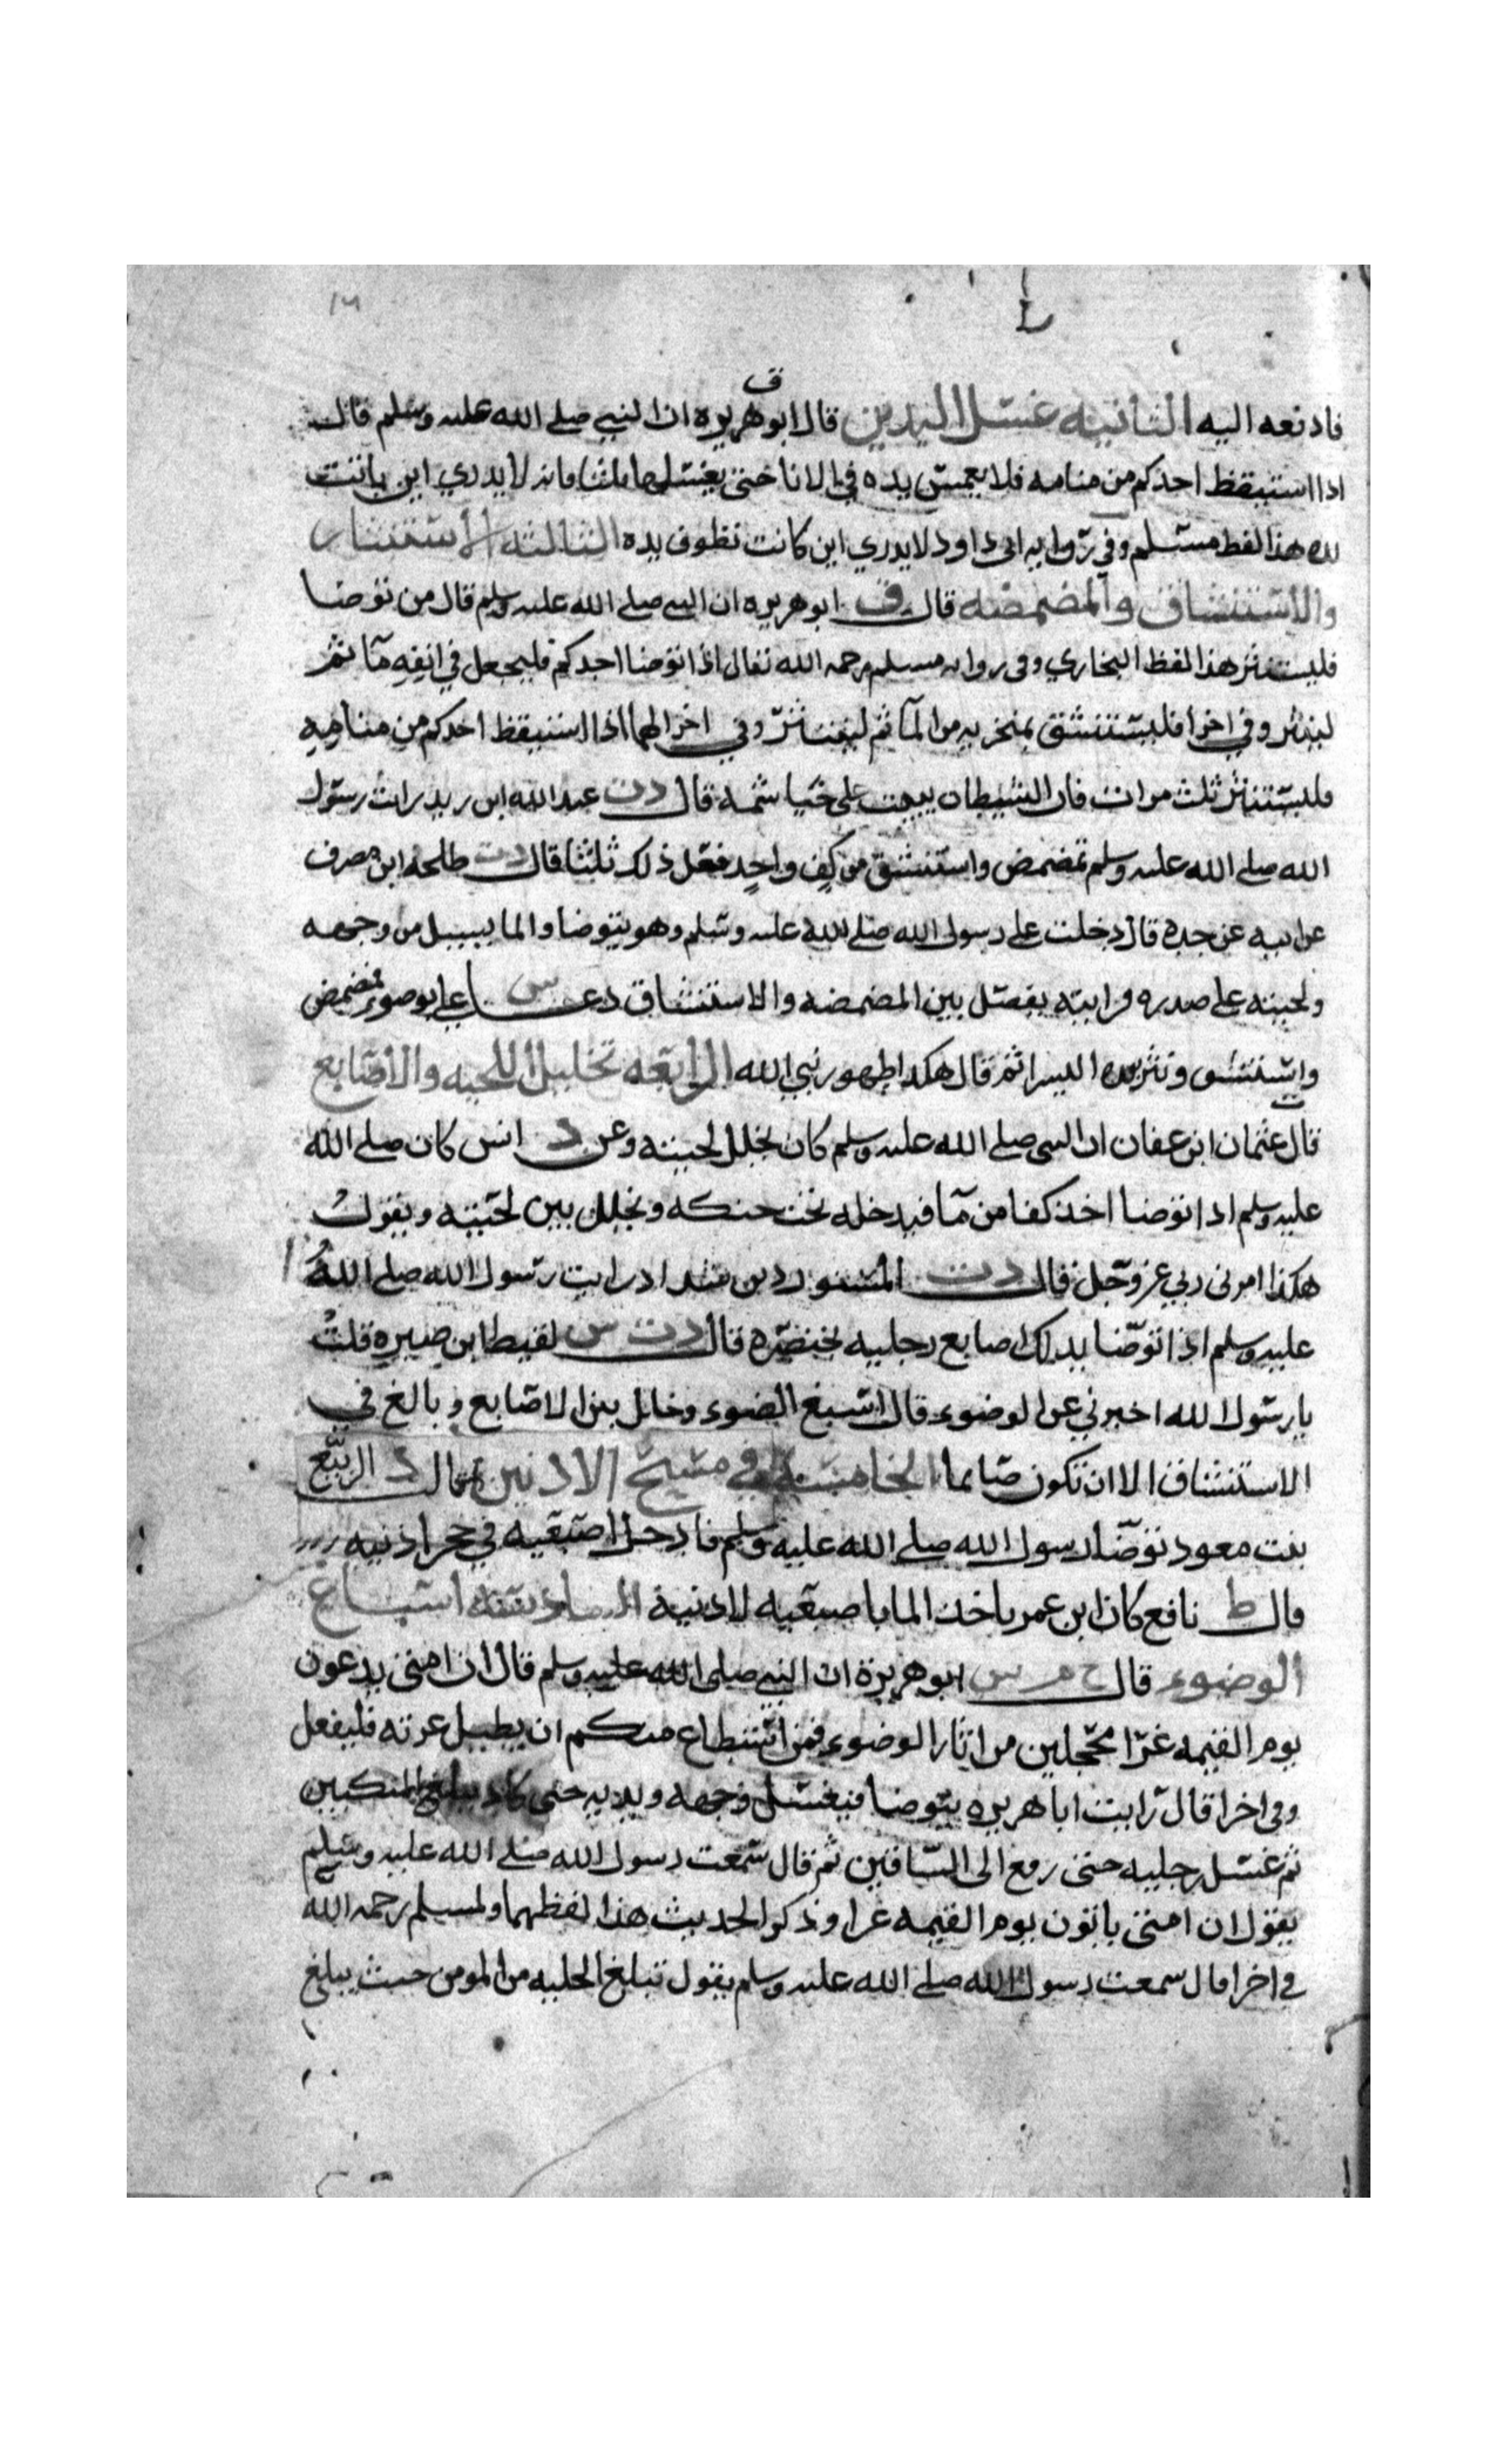 ١٦
ق
فادفعه اليه الثانيه غسل اليدين قال ابو هريره ان النبي صلى الله عليه وسلم قال
اذا استيقظ احدكم من منامه فلا يغمس يده في الانا حتى يغسلها ثلثا فانه لا يدري اين باتت
يده هذا لفظ مسلم وفي روايه ابي داود لا يدري اين كانت تطوف يده الثالثه الاستنثار
والاستنشاق والمضمضه قال ق ابو هريره ان النبي صلى الله عليه وسلم قال من توضا
فليستنثر هذا لفظ البخاري وفي روايه مسلم رحمه الله تعالى اذا توضا احدكم فليجعل في انفه مآ ثم
لينثر وفي اخرا فليستنشق بمنخريه من المآ ثم لينتثر وفي اخرا لهما اذا استيقظ احدكم من منامه
فليستنثر ثلث مرات فان الشيطان يبيت على خياشمه قال د ت عبد الله ابن زيد رايت رسول
الله صلى الله عليه وسلم تمضمض واستنشق من كف واحد فعل ذلك ثلثا قال د ت طلحه ابن مصرف
عن ابيه عن جده قال دخلت على رسول الله صلى الله عليه وسلم وهو يتوضا والما يسيل من وجهه
ولحيته على صدره فرايته يفصل بين المضمضه والاستنشاق دعا س علي بوضوء فمضمض
واستنشق ونثر بيده اليسرا ثم قال هكذا طهور نبي الله الرابعه تخليل اللحيه والاصابع
ت
قال عثمان ابن عفان ان النبي صلى الله عليه وسلم كان يخلل لحيته وعن د انس كان صلى الله
عليه وسلم اذا توضا اخذ كفا من مآ فيدخله تحت حنكه ويخلل بين لحيته ويقول
هكذا امرني ربي عز وجل قال د ت المستورد بن شداد رايت رسول الله صلى الله
عليه وسلم اذا توضا يدلك اصابع رجليه بخنصره قال د ت س لقيط ابن صبره قلت
يا رسول الله اخبرني عن الوضوء قال اسبغ الضوء وخلل بين الاصابع وبالغ في
الاستنشاق الا ان تكون صايما الخامسه في مسح الاذنين قال د الربيع
بنت معوذ توضا رسول الله صلى الله عليه وسلم فادخل اصبعيه في جحر اذنيه
قال ط نافع كان ابن عمر ياخذ الما باصبعيه لاذنيه اسباغ
الوضوء قال خ م س ابو هريرة ان النبي صلى الله عليه وسلم قال ان امتي يدعون
يوم القيمه غرّا محجلين من اثار الوضوء فمن استطاع منكم ان يطيل غرته فليفعل
وفي اخرا قال رايت ابا هريره يتوضا فيغسل وجهه ويديه حتى كاد يبلغ المنكبين
ثم غسل رجليه حتى رفع الى الساقين ثم قال سمعت رسول الله صلى الله عليه وسلم
يقول ان امتي ياتون يوم القيمه غرا وذكر الحديث هذا لفظهما ولمسلم رحمه الله
في اخرا قال سمعت رسول الله صلى الله عليه وسلم يقول تبلغ الحليه من المومن حيث يبلغ